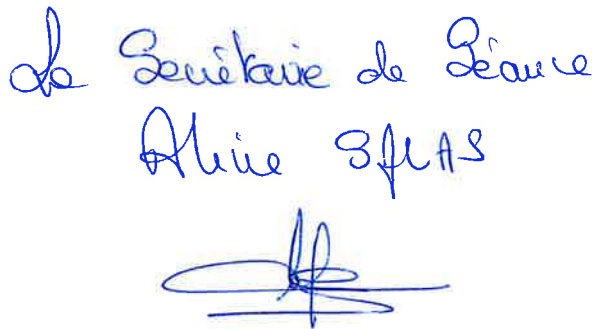 La Secrétaire de Séance
Aline